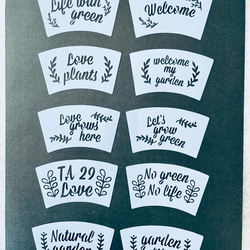 Life with
green
Welcome
Love
plants
welcome
my
garden
Love
grows
here
Let's
grow
green
T.A 29
Love
No green
No life
Natural
garden
garden